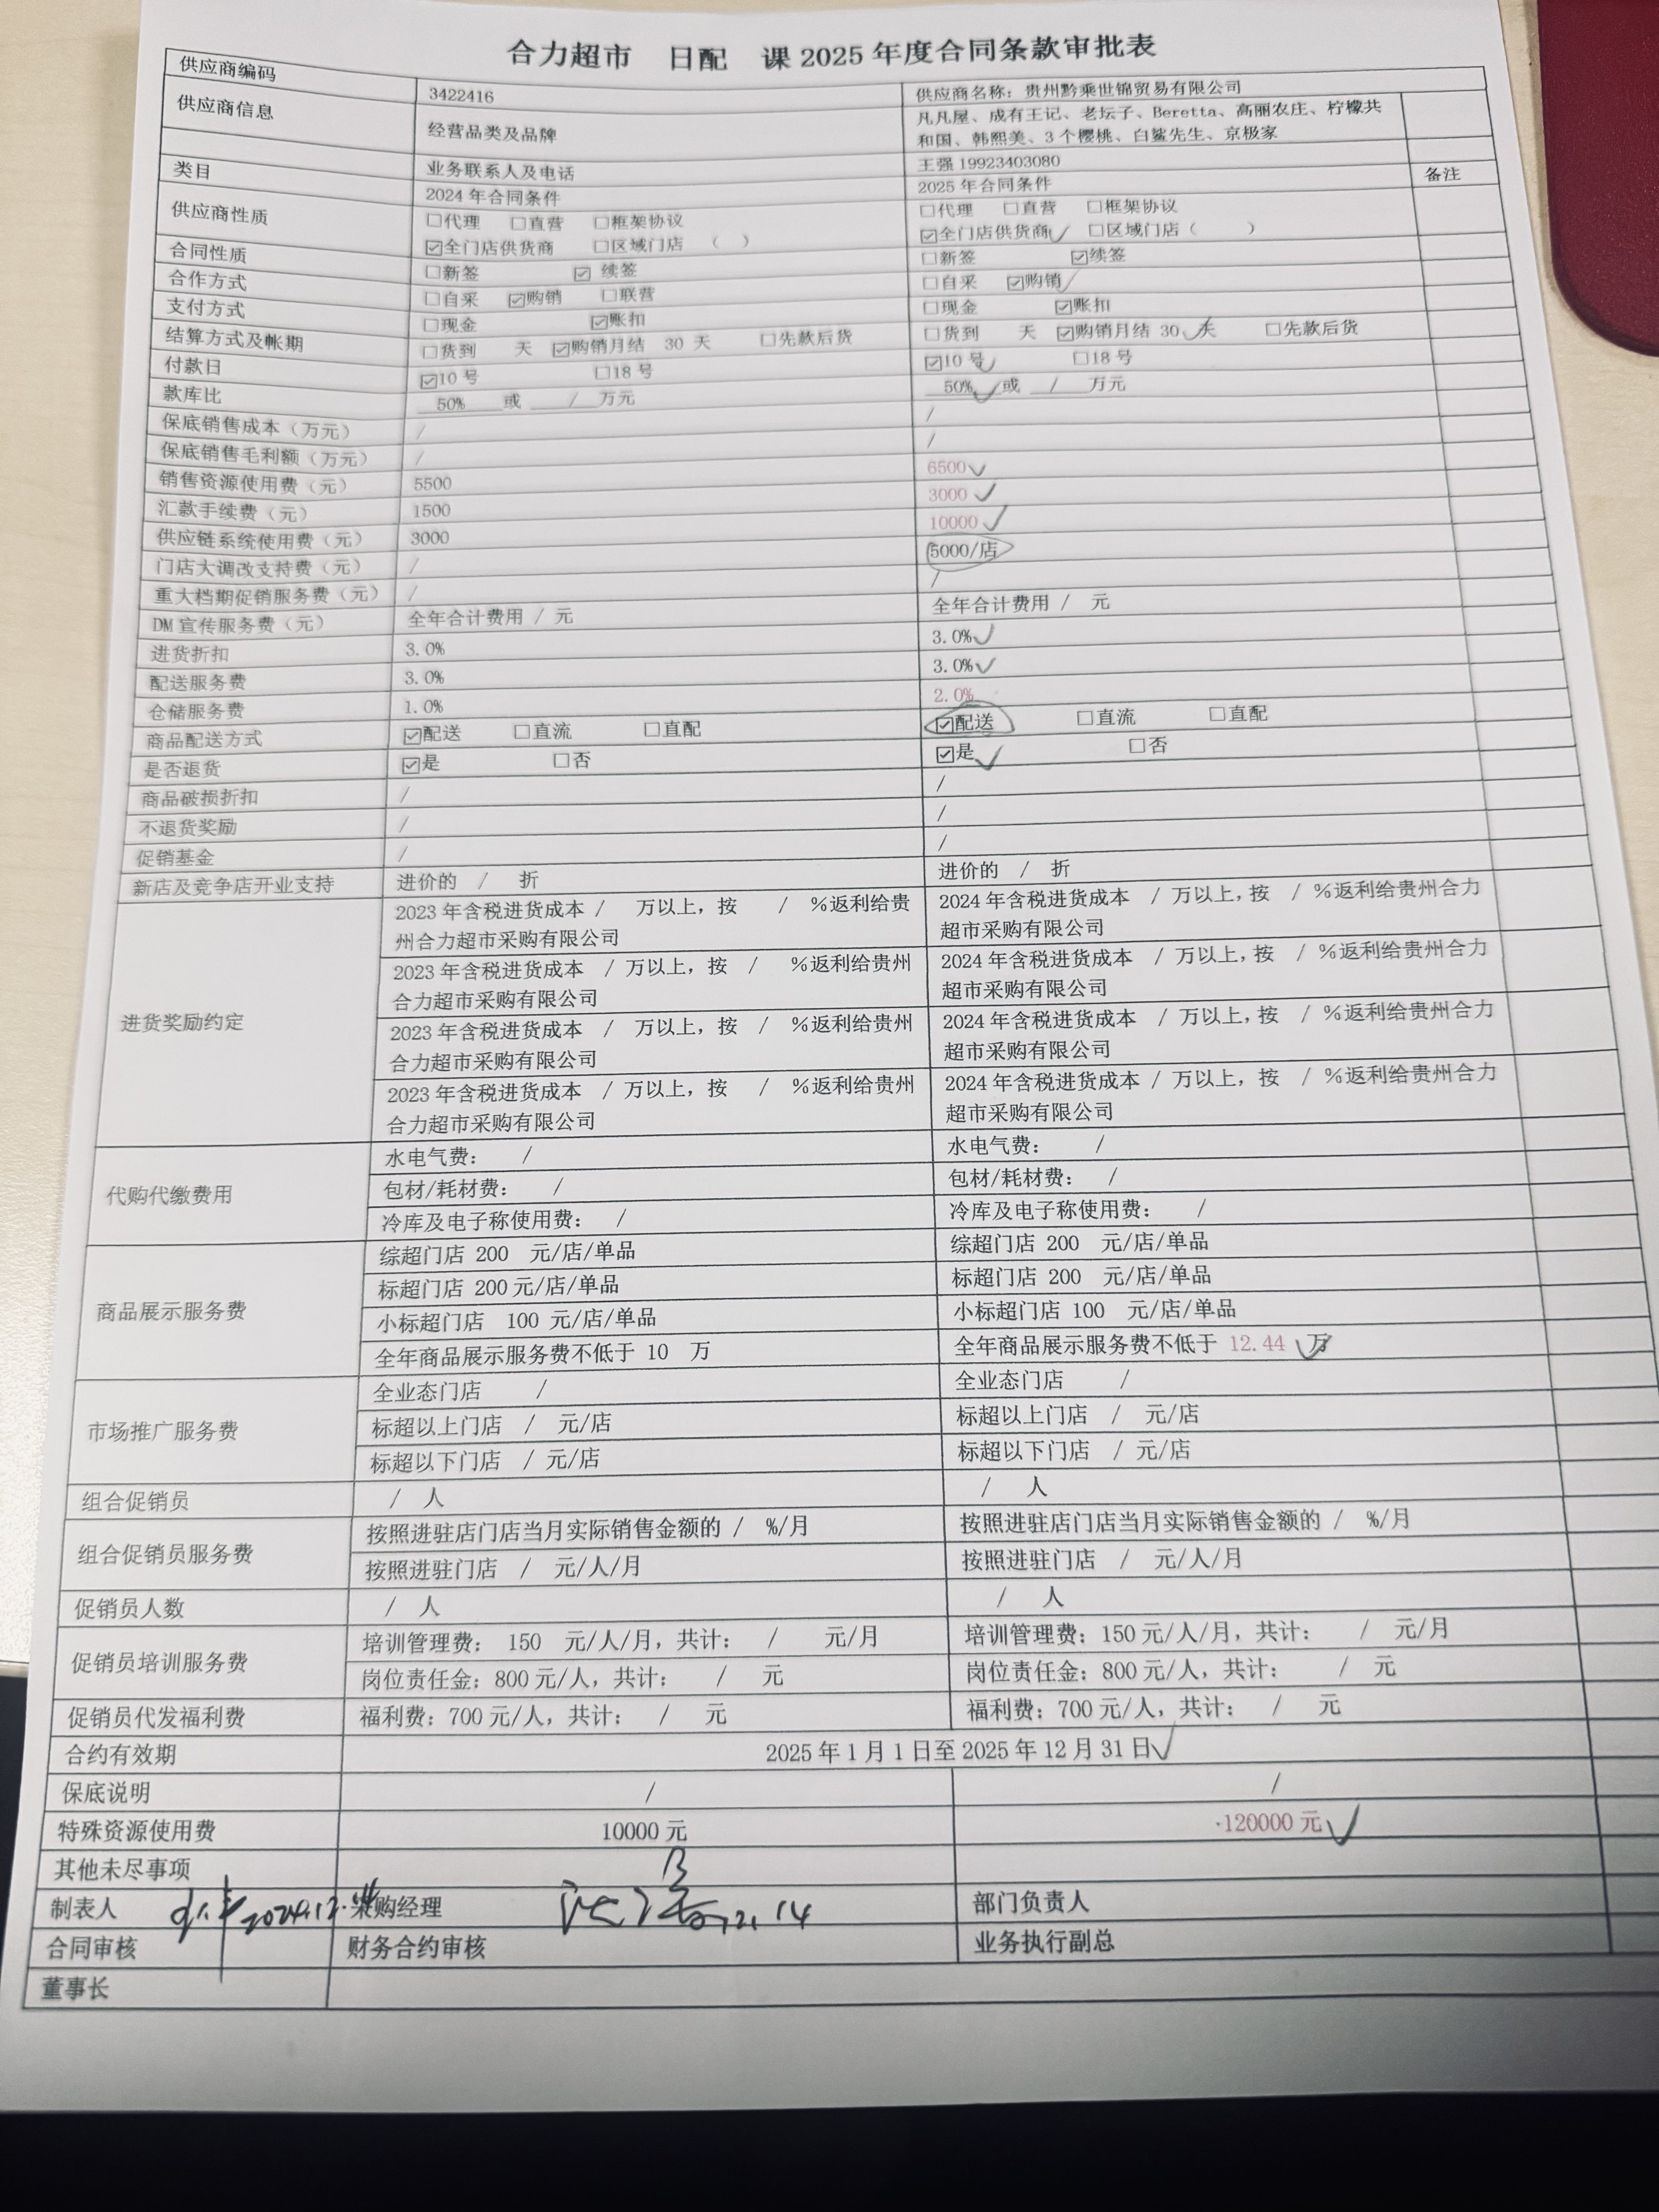 合力超市 日配 课 2025 年度合同条款审批表
供应商编码 3422416 供应商名称：贵州黔乘世锦贸易有限公司
供应商信息 经营品类及品牌 凡凡屋、成有王记、老坛子、Beretta、高丽农庄、柠檬共
和国、韩熙美、3 个樱桃、白鲨先生、京极家
业务联系人及电话 王强 19923403080
类目 2024 年合同条件 2025 年合同条件 备注
供应商性质 □代理 □直营 □框架协议 □代理 □直营 □框架协议
☑全门店供货商 □区域门店 （ ） ☑全门店供货商 □区域门店（ ）
合同性质 □新签 ☑ 续签 □新签 ☑续签
合作方式 □自采 ☑购销 □联营 □自采 ☑购销
支付方式 □现金 ☑账扣 □现金 ☑账扣
结算方式及帐期 □货到 天 ☑购销月结 30 天 □先款后货 □货到 天 ☑购销月结 30 天 □先款后货
付款日 ☑10 号 □18 号 ☑10 号 □18 号
款库比 50% 或 / 万元 50% 或 / 万元
保底销售成本（万元） / /
保底销售毛利额（万元） / /
销售资源使用费（元） 5500 6500
汇款手续费（元） 1500 3000
供应链系统使用费（元） 3000 10000
门店大调改支持费（元） / 5000/店
重大档期促销服务费（元） / /
DM 宣传服务费（元） 全年合计费用 / 元 全年合计费用 / 元
进货折扣 3.0% 3.0%
配送服务费 3.0% 3.0%
仓储服务费 1.0% 2.0%
商品配送方式 ☑配送 □直流 □直配 ☑配送 □直流 □直配
是否退货 ☑是 □否 ☑是 □否
商品破损折扣 / /
不退货奖励 / /
促销基金 / /
新店及竞争店开业支持 进价的 / 折 进价的 / 折
进货奖励约定
2023 年含税进货成本 / 万以上，按 / %返利给贵 2024 年含税进货成本 / 万以上，按 / %返利给贵州合力
州合力超市采购有限公司 超市采购有限公司
2023 年含税进货成本 / 万以上，按 / %返利给贵州 2024 年含税进货成本 / 万以上，按 / %返利给贵州合力
合力超市采购有限公司 超市采购有限公司
2023 年含税进货成本 / 万以上，按 / %返利给贵州 2024 年含税进货成本 / 万以上，按 / %返利给贵州合力
合力超市采购有限公司 超市采购有限公司
2023 年含税进货成本 / 万以上，按 / %返利给贵州 2024 年含税进货成本 / 万以上，按 / %返利给贵州合力
合力超市采购有限公司 超市采购有限公司
代购代缴费用
水电气费： / 水电气费： /
包材/耗材费： / 包材/耗材费： /
冷库及电子称使用费： / 冷库及电子称使用费： /
商品展示服务费
综超门店 200 元/店/单品 综超门店 200 元/店/单品
标超门店 200 元/店/单品 标超门店 200 元/店/单品
小标超门店 100 元/店/单品 小标超门店 100 元/店/单品
全年商品展示服务费不低于 10 万 全年商品展示服务费不低于 12.44 万
市场推广服务费
全业态门店 / 全业态门店 /
标超以上门店 / 元/店 标超以上门店 / 元/店
标超以下门店 / 元/店 标超以下门店 / 元/店
组合促销员 / 人 / 人
组合促销员服务费
按照进驻店门店当月实际销售金额的 / %/月 按照进驻店门店当月实际销售金额的 / %/月
按照进驻门店 / 元/人/月 按照进驻门店 / 元/人/月
促销员人数 / 人 / 人
促销员培训服务费
培训管理费： 150 元/人/月，共计： / 元/月 培训管理费：150 元/人/月，共计： / 元/月
岗位责任金：800 元/人，共计： / 元 岗位责任金：800 元/人，共计： / 元
促销员代发福利费 福利费：700 元/人，共计： / 元 福利费：700 元/人，共计： / 元
合约有效期 2025 年 1 月 1 日至 2025 年 12 月 31 日
保底说明 / /
特殊资源使用费 10000 元 120000 元
其他未尽事项
制表人 2024.12. 采购经理 12.14 部门负责人
合同审核 财务合约审核 业务执行副总
董事长